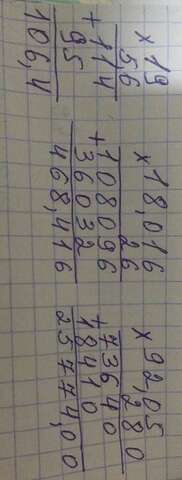 × 19
56
+ 114
95
106,4
× 18,016
26
+ 108096
36032
468,416
× 92,05
280
+ 73640
18410
25774,00